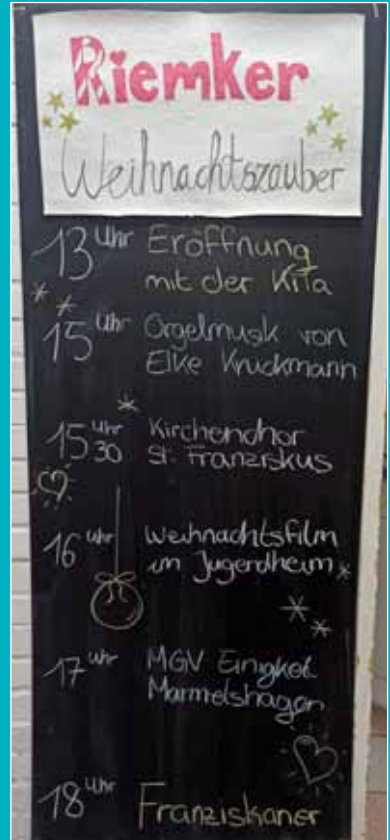 Riemker
Weihnachtszauber
13 Uhr Eröffnung
mit der Kita
15 Uhr Orgelmusik von
Elke Kruckmann
15 Uhr 30 Kirchenchor
St. Franziskus
16 Uhr Weihnachtsfilm
im Jugendheim
17 Uhr MGV Einigkeit
Marmelshagen
18 Uhr Franziskaner